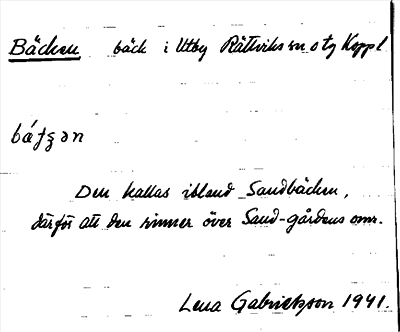 Bäcken bäck i Utby Rättviks sn o tg Koppl
Den kallas ibland Sandbäcken,
därför att den rinner över Sand-gårdens omr.
Lena Gabrielsson 1941.